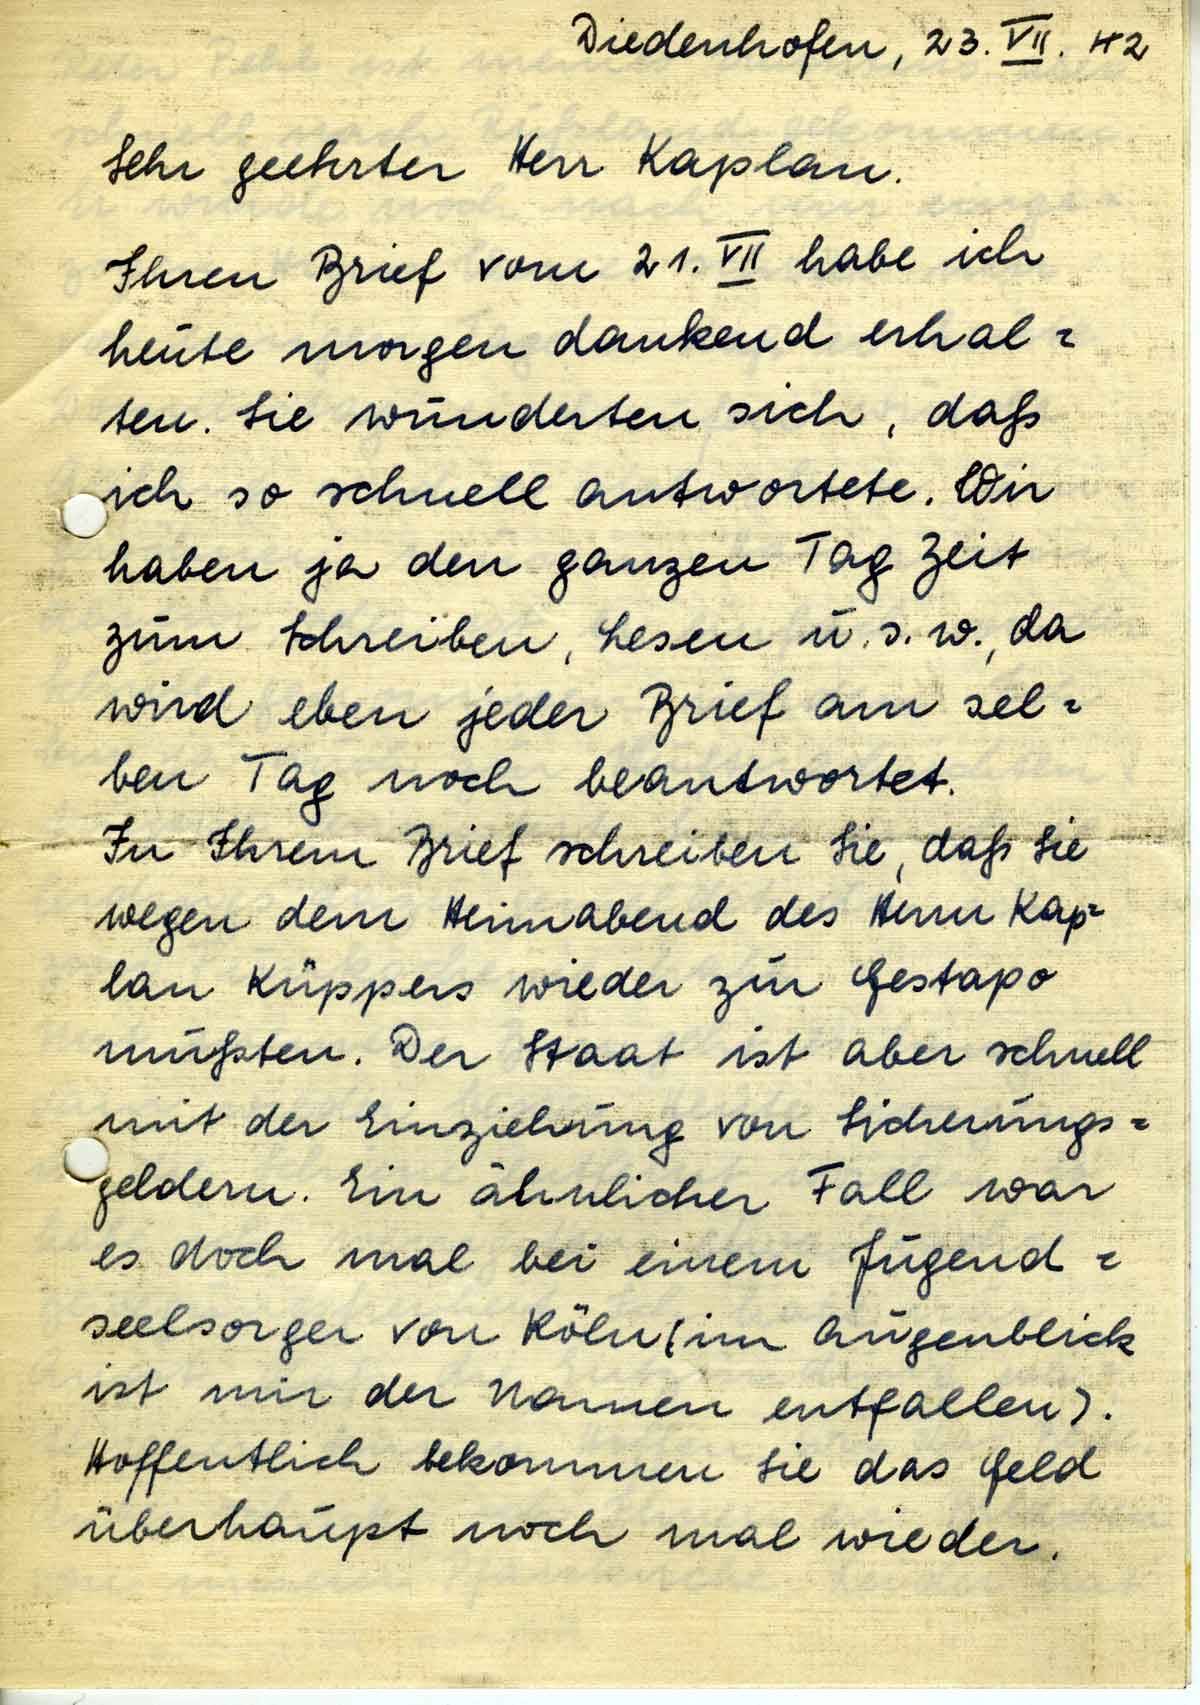 Diedenhofen, 23. VII. 42
Sehr geehrter Herr Kaplan.
Ihren Brief vom 21. VII habe ich
heute morgen dankend erhal=
ten. Sie wunderten sich, daß
ich so schnell antwortete. Wir
haben ja den ganzen Tag Zeit
zum Schreiben, Lesen u. s. w., da
wird eben jeder Brief am sel=
ben Tag noch beantwortet.
In Ihrem Brief schreiben Sie, daß Sie
wegen dem Heimabend des Herrn Kap=
lan Küppers wieder zur Gestapo
mußten. Der Staat ist aber schnell
mit der Einziehung von Sicherungs=
geldern. Ein ähnlicher Fall war
es doch mal bei einem Jugend=
seelsorger von Köln (im Augenblick
ist mir der Namen entfallen).
Hoffentlich bekommen Sie das Geld
überhaupt noch mal wieder.